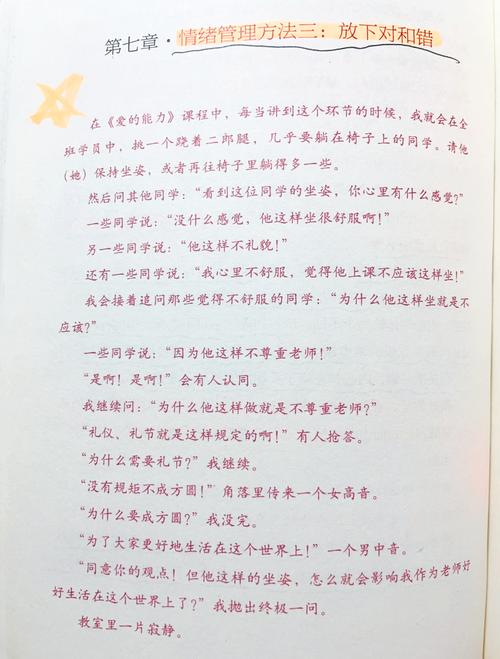 第七章·情绪管理方法三：放下对和错
在《爱的能力》课程中，每当讲到这个环节的时候，我就会在全
班学员中，挑一个跷着二郎腿，几乎要躺在椅子上的同学。请他
（她）保持坐姿，或者再往椅子里躺得多一些。
然后问其他同学：“看到这位同学的坐姿，你心里有什么感觉？”
一些同学说：“没什么感觉，他这样坐很舒服啊！”
另一些同学说：“他这样不礼貌！”
还有一些同学说：“我心里不舒服，觉得他上课不应该这样坐！”
我会接着追问那些觉得不舒服的同学：“为什么他这样坐就是不
应该？”
一些同学说：“因为他这样不尊重老师！”
“是啊！是啊！”会有人认同。
我继续问：“为什么他这样做就是不尊重老师？”
“礼仪、礼节就是这样规定的啊！”有人抢答。
“为什么需要礼节？”我继续。
“没有规矩不成方圆！”角落里传来一个女高音。
“为什么要成方圆？”我没完。
“为了大家更好地生活在这个世界上！”一个男中音。
“同意你的观点！但他这样的坐姿，怎么就会影响我作为老师好
好生活在这个世界上了？”我抛出终极一问。
教室里一片寂静。